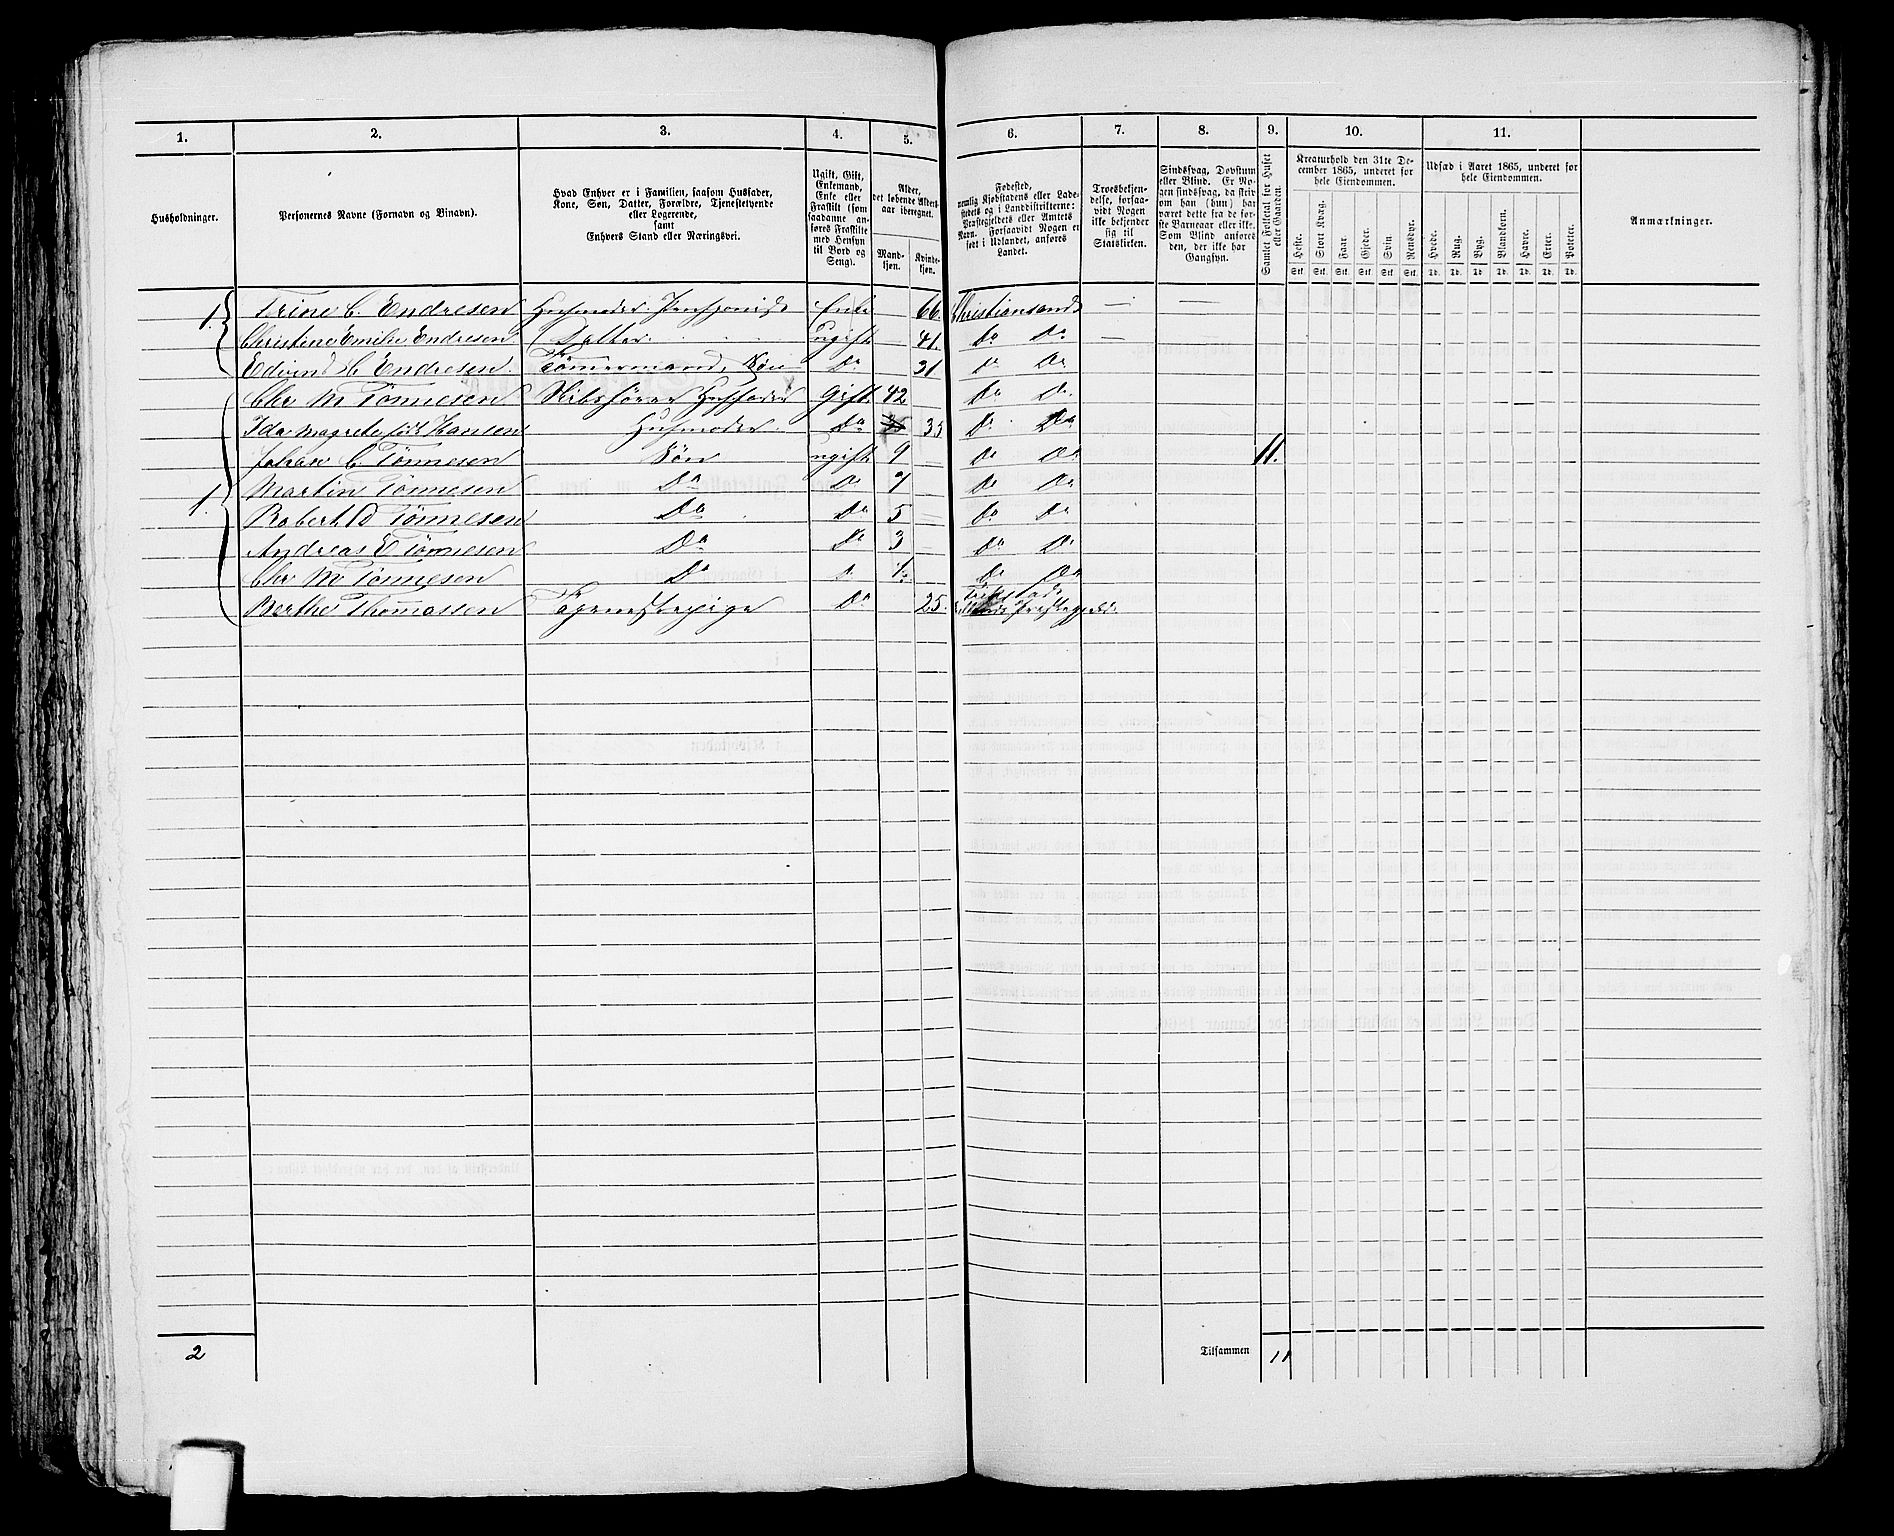 1. 2. 3. 4. 5. 6. 7. 8. 9. 10. 11.
Husholdninger.
Personernes Navne (Fornavn og Binavn).
Hvad Enhver er i Familien, saasom Husfader,
Kone, Søn, Datter, Forældre, Tjenestetyende
eller Logerende,
samt
Enhvers Stand eller Næringsvei.
Ugift, Gift,
Enkemand,
Enke eller
Fraskilt (som
saadanne an-
føres Fraskilte
med Hensyn
til Bord og
Seng).
Alder,
det løbende Alders-
aar iberegnet.
Mand-
kjøn.
Kvinde-
kjøn.
Fødested,
nemlig Kjøbstadens eller Lade-
stedets og i Landdistrikterne:
Præstegjeldets eller Amtets
Navn. Forsaavidt Nogen er
født i Udlandet, anføres
Landet.
Troesbekjen-
delse, forsaa-
vidt Nogen
ikke bekjender
sig til
Statskirken.
Sindssvag, Døvstum
eller Blind. Er No-
gen sindssvag, da skriv
om han (hun) har
været dette fra de før-
ste Barneaar eller ikke.
Som Blind anføres
den, der ikke har
Gangsyn.
Samlet Folketal for Huset
eller Gaarden.
Kreaturhold den 31te De-
cember 1865, underet for
hele Eiendommen.
Heste. Stort Kvæg. Faar. Gjeder. Svin. Rensdyr.
Stk. Stk. Stk. Stk. Stk. Stk.
Udsæd i Aaret 1865, underet for
hele Eiendommen.
Hvede. Rug. Byg. Blandkorn. Havre. Erter. Poteter.
Td. Td. Td. Td. Td. Td. Td.
Anmærkninger.
1. Trine C. Endresen Husmoder Pensjonist Enke — 66. Christiansand — —
Christine Emilie Endresen Datter ugift — 41. Do Do —
Edvind C Endresen. Tømermand, Søn Do 21 Do Do
Chr M Tønnesen Skibsfører Husfader Gift 42 Do Do
Ida Magrete født Hansen Husmoder Do 35 Do Do
Johan C. Tønnesen Søn ugift 9 — Do Do 11.
1. Martin Tønnesen Do Do 7 Do Do
Robert D Tønnesen Do Do 5 — Do Do
Andreas E Tønnesen Do Do 3 — Do Do
Chr M Tønnesen Do Do 1 Do Do
Berthe Thomassen Tjenestepige Do 25. Præstegjeld.
2 Tilsammen 11